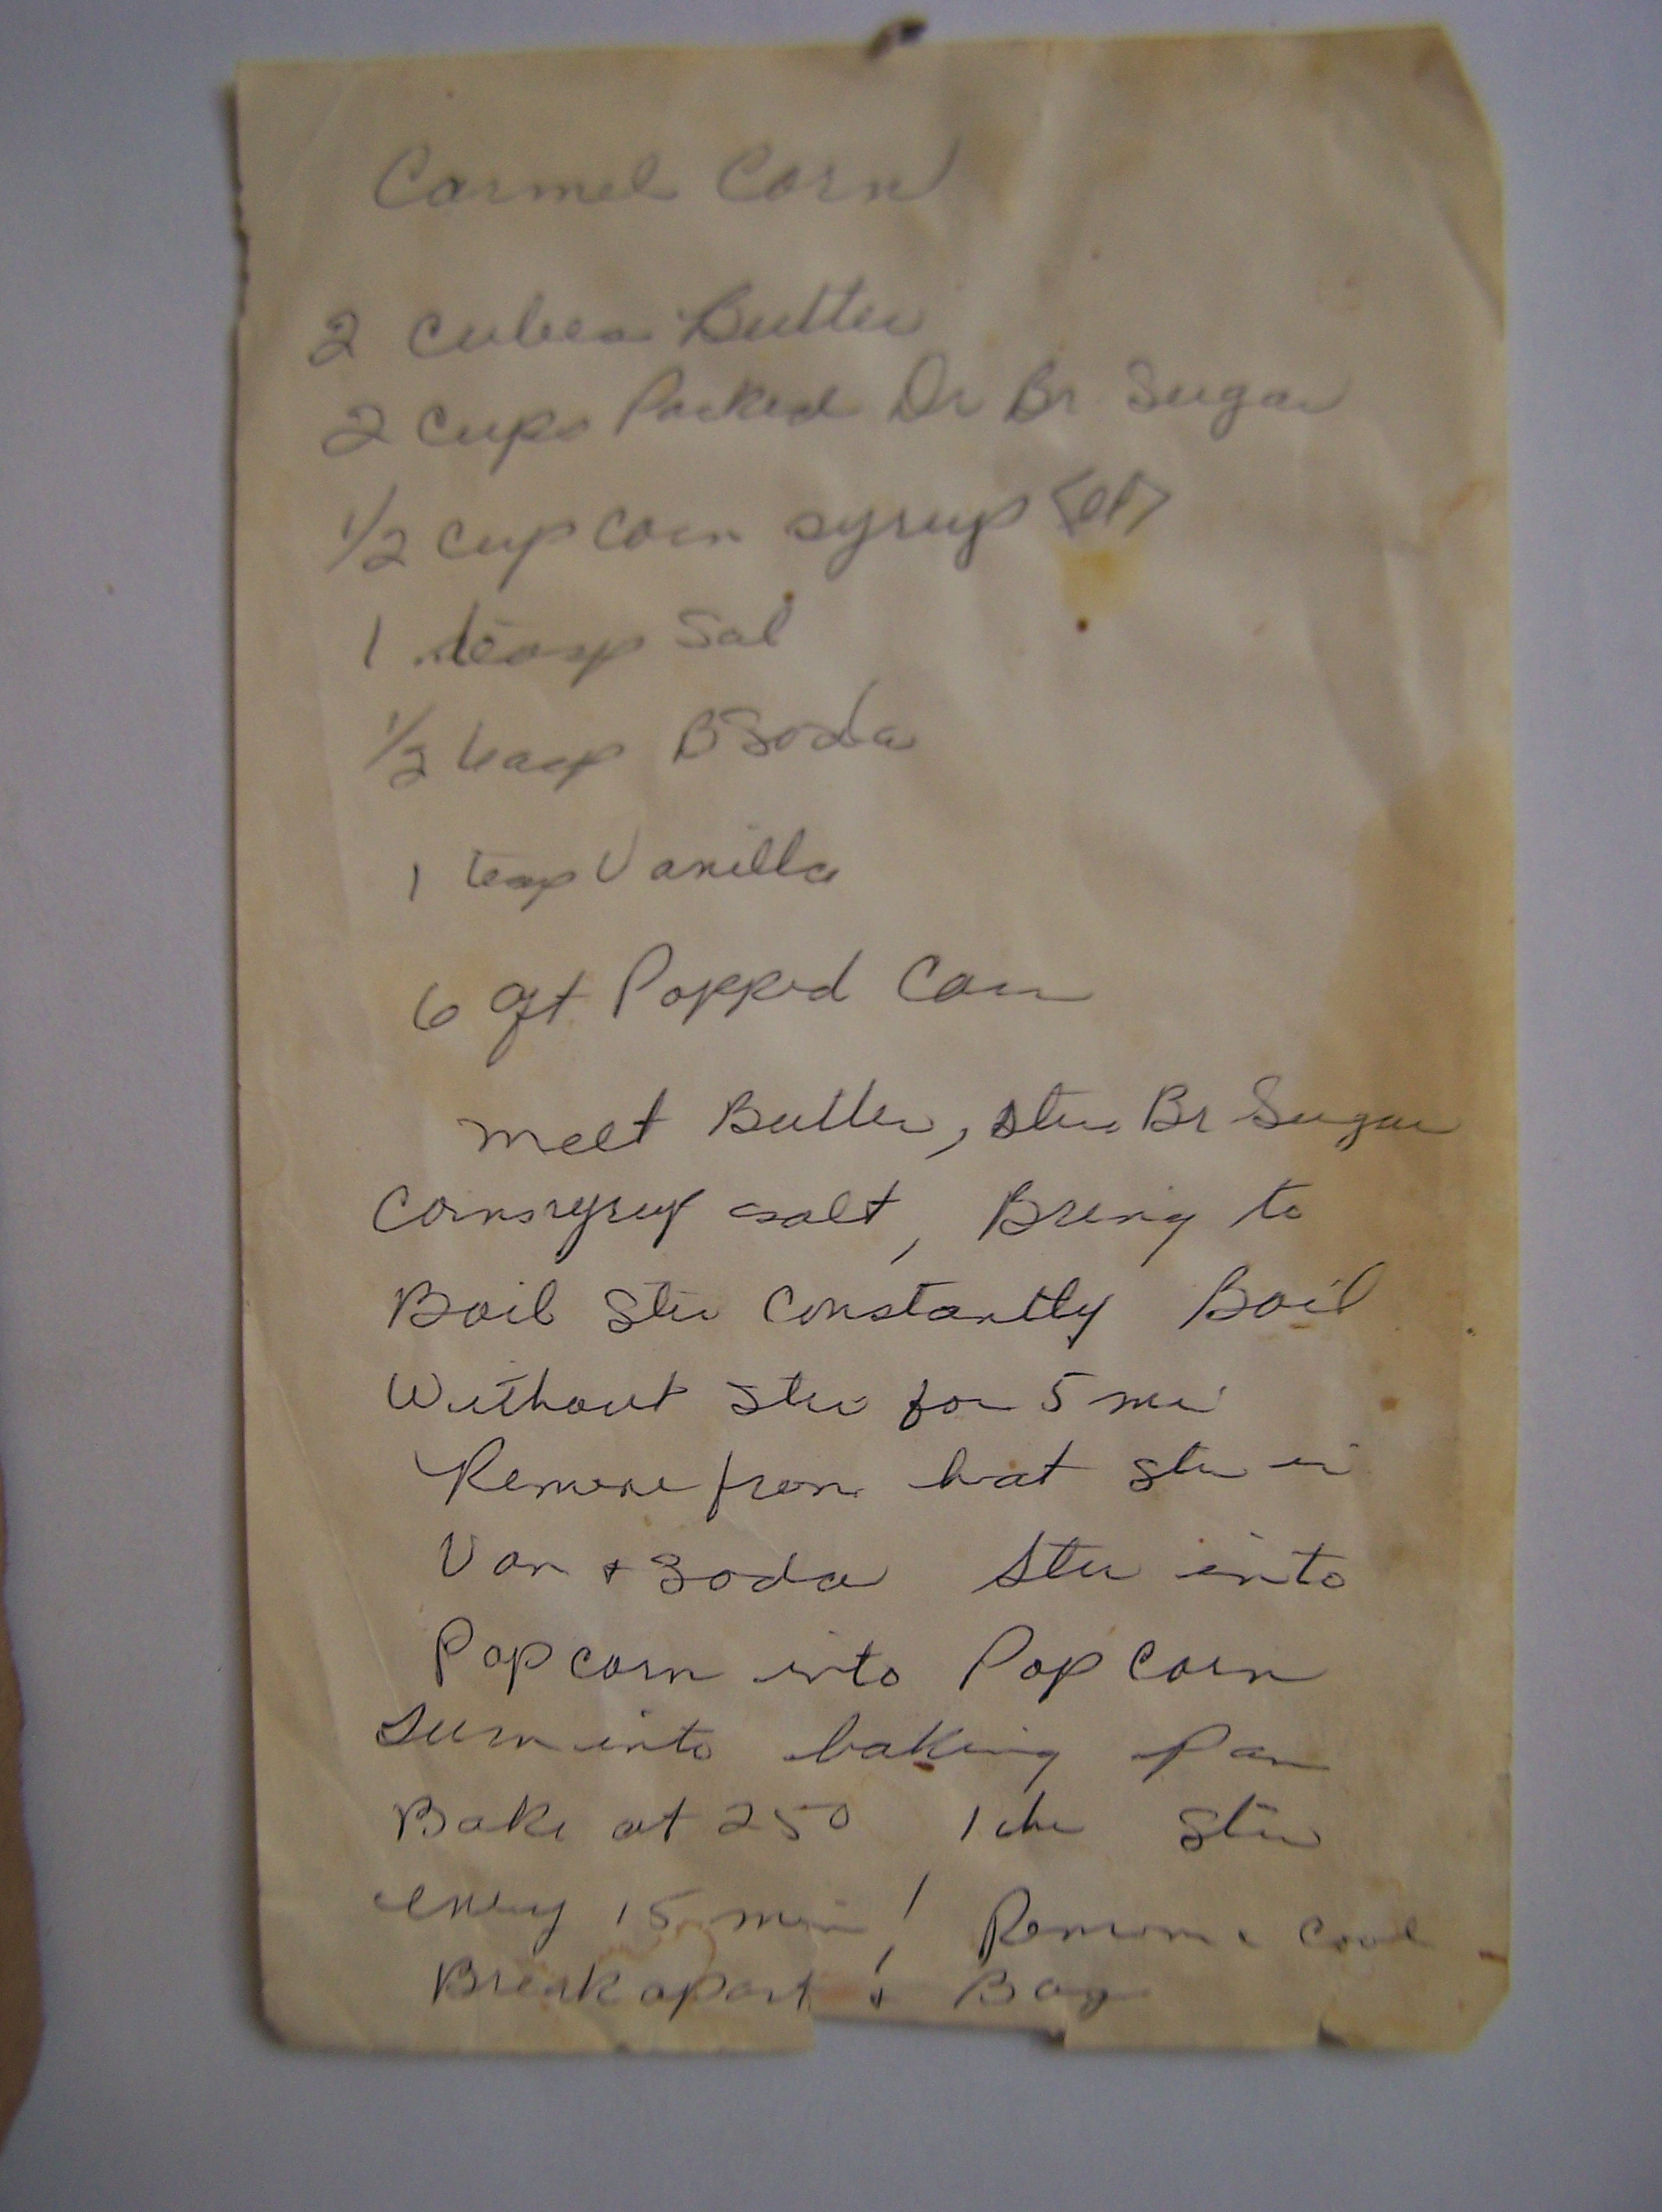 Carmel Corn
2 cubes Butter
2 cups Packed Dr Br Sugar
1/2 cup corn syrup
1 teasp Sal
1/2 teasp B Soda
1 teasp Vanilla
6 qt Popped Corn
melt Butter, stir Br Sugar
Cornsyrup salt, Bring to
Boil Stir Constantly Boil
Without Stir for 5 min
Remove from heat stir in
Van + Soda Stir into
Popcorn into Pop Corn
into baking Pan
Bake at 250 1 hr Stir
every 15 min! Remove cool
Break apart & Bag